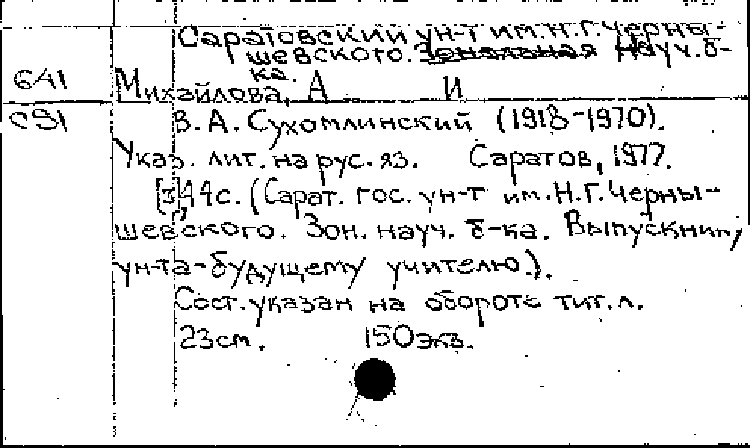 Саратовский ун-т им. Н.Г. Черны-
шевского. Зональная Науч. б-
ка.
641 Михайлова, А И
С91 В. А. Сухомлинский (1918-1970).
Указ. лит. на рус. яз. Саратов, 1977.
[3], 44 с. (Сарат. гос. ун-т им. Н.Г. Черны-
шевского. Зон. науч. б-ка. Выпускнику
ун-та - будущему учителю.).
Сост. указан на обороте тит. л.
23 см. 150 экз.